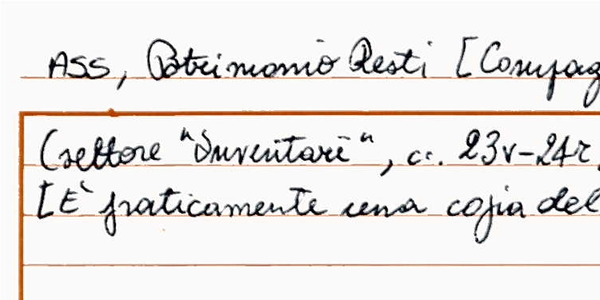 ASS, Patrimonio Resti [Compag
(settore "Inventari", cc. 23v-24r,
[E' praticamente una copia del